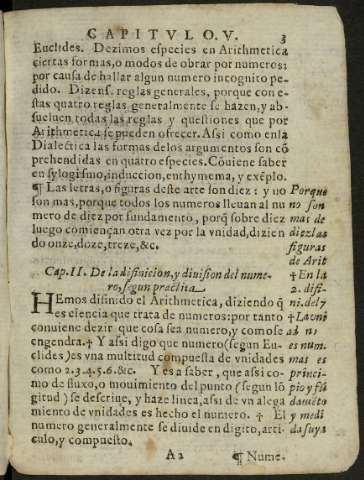 CAPITVLO.V. 3
Euclides. Dezimos especies en Arithmetica
ciertas formas, o modos de obrar por numeros:
por causa de hallar algun numero incognito pe-
dido. Dizense reglas generales, porque con e-
stas quatro reglas generalmente se hazen, y ab-
sueluen todas las reglas y questiones que por
Arithmetica se pueden ofrecer. Assi como enla
Dialectica las formas delos argumentos son cõ
prehendidas en quatro especies. Cõuiene saber
en sylogismo, induccion, enthymema, y exẽplo.
¶ Las letras, o figuras deste arte son diez: y no
son mas, porque todos los numeros lleuan al nu
mero de diez por fundamento, porq̃ sobre diez
luego comiençan otra vez por la vnidad, dizien
do onze, doze, treze, &c.
Porque
no son
mas de
diez las
figuras
de Arit
Cap. II. De la difinicion, y diuision del nume-
ro, segun practica.
HEmos difinido el Arithmetica, diziendo q̃
es ciencia que trata de numeros: por tanto
conuiene dezir que cosa sea numero, y como se
engendra. † Y assi digo que numero (segun Eu-
clides) es vna multitud compuesta de vnidades
como 2.3.4.5.6.&c. Y es a saber, que assi co-
mo de fluxo, o mouimiento del punto (segun lõ
gitud) se descriue, y haze linea, assi de vn alega
miento de vnidades es hecho el numero. † El
numero generalmente se diuide en digito, arti-
culo, y compuesto.
† En la
2. difi-
ni. del 7
† La vni
ad ni
es num.
mas es
princi-
pio y fũ
damẽto
y medi
da suya
A2 ¶ Nume-